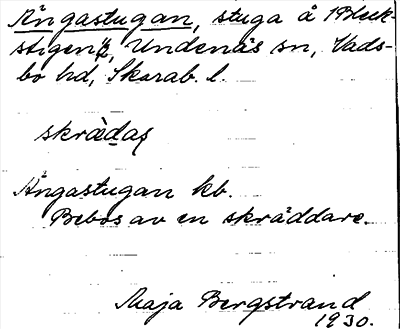 Ängastugan, stuga å "Bleck-
stigen", Undenäs sn, Vads-
bo hd, Skarab. l.
skrädas
Ängastugan kb.
Bebos av en skräddare.
Maja Bergstrand
1930.